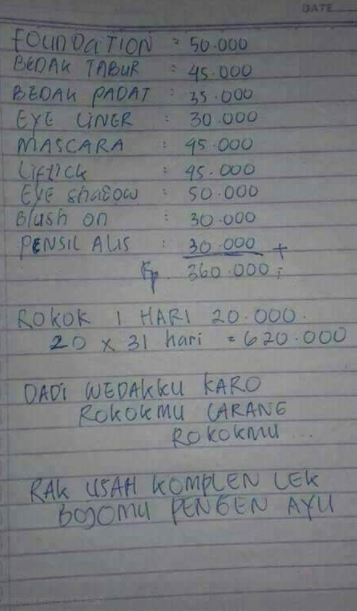 DATE
FOUNDATION = 50.000
BEDAK TABUR : 45.000
BEDAK PADAT : 35.000
EYE LINER : 30.000
MASCARA : 45.000
Liftick : 45.000
EYE shadow : 50.000
Blush on : 30.000
PENSIL ALIS : 30.000 +
Rp 360.000;
ROKOK 1 HARI 20.000.
20 x 31 hari = 620.000
DADI WEDAKKU KARO
ROKOKMU LARANG
ROKOKMU...
RAK USAH KOMPLEN LEK
BOJOMU PENGEN AYU